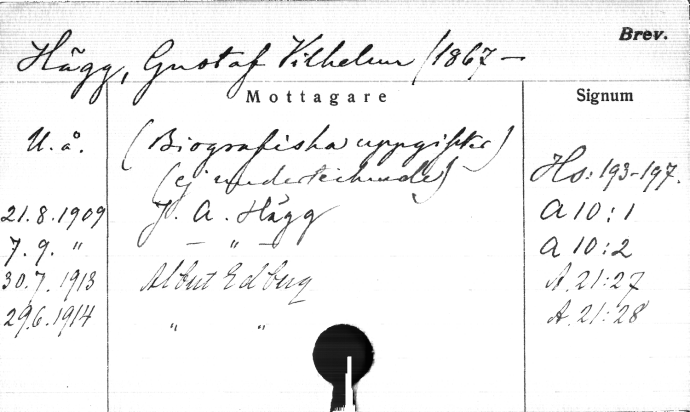 Brev.
Hägg, Gustaf Vilhelm (1867 -
Mottagare Signum
U. å. (Biografiska uppgifter)
(ej undertecknade) Hs: 193-197.
21.8.1909 J. A. Hägg A 10:1
7.9. " - " - A 10:2
30.7.1913 Albert Edberg A. 21:27
29.6.1914 " " A. 21:28